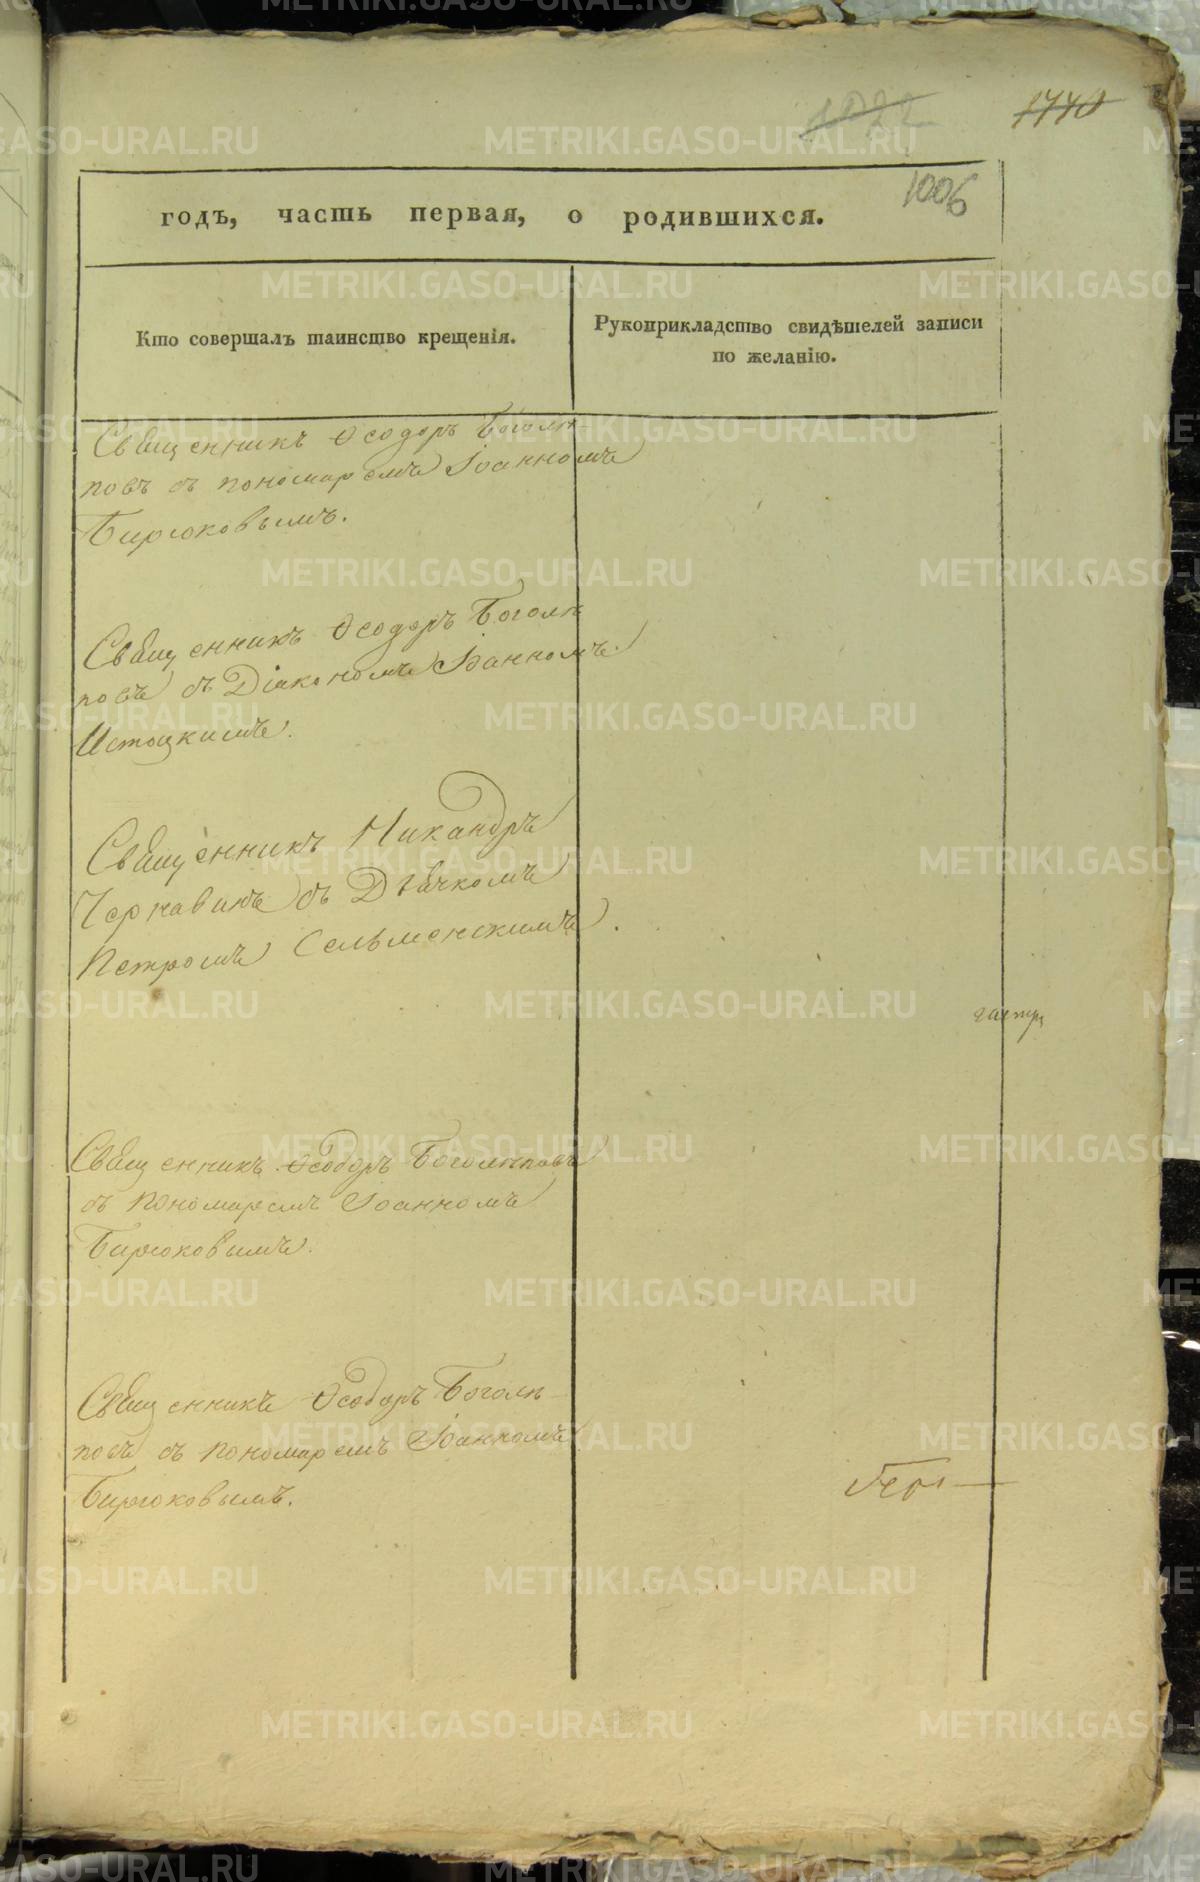 1770
1006
годъ, часть первая, о родившихся.
Кто совершалъ таинство крещенія.
Рукоприкладство свидѣтелей записи
по желанію.
Священникъ Ѳеодоръ Боголѣ-
повъ съ пономаремъ Іоанномъ
Бирюковымъ.
Священникъ Ѳеодоръ Боголѣ
повъ съ Діакономъ Іоанномъ
Истоцкимъ.
Священникъ Никандръ
Чернавинъ съ Дьячкомъ
Петромъ Сельменскимъ.
Священникъ Ѳеодоръ Боголѣповъ
съ пономаремъ Іоанномъ
Бирюковымъ.
Священникъ Ѳеодоръ Боголѣ
повъ съ пономаремъ Іоанномъ
Бирюковымъ.
METRIKI.GASO-URAL.RU